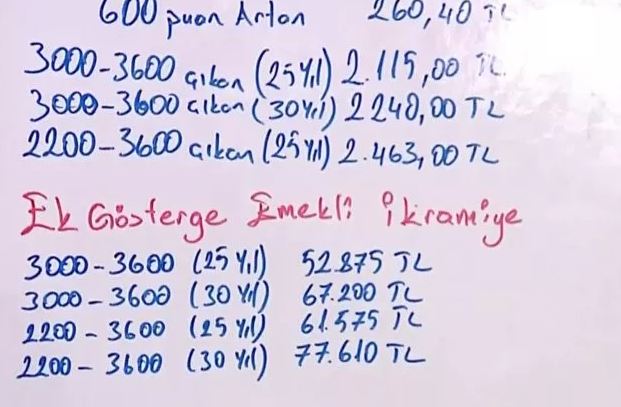 600 puan Artan 260,40 TL
3000-3600 çıkan (25 Yıl) 2.115,00 TL
3000-3600 çıkan (30 Yıl) 2240,00 TL
2200-3600 çıkan (25 Yıl) 2.463,00 TL
Ek Gösterge Emekli ikramiye
3000-3600 (25 Yıl) 52.875 TL
3000-3600 (30 Yıl) 67.200 TL
2200-3600 (25 Yıl) 61.575 TL
2200-3600 (30 Yıl) 77.610 TL